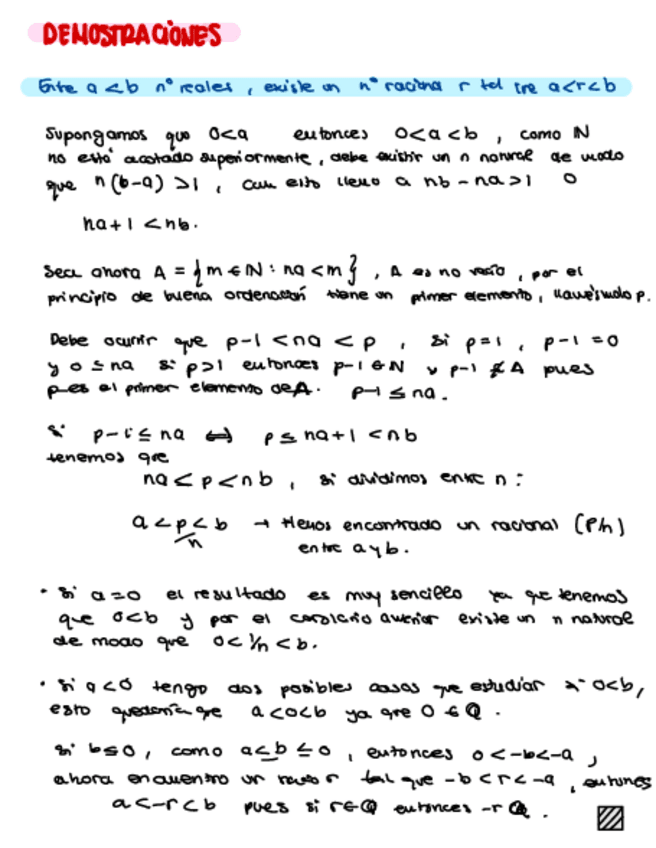 DEMOSTRACIONES
Entre a < b nº reales, existe un nº racional r tal que a<r<b
Supongamos que 0<a entonces 0<a<b, como ℕ
no está acotado superiormente, debe existir un n natural de modo
que n(b-a) >1, con esto llevo a nb - na > 1 o
na + 1 < nb.
Sea ahora A = {m ∈ ℕ : na < m}, A es no vacío, por el
principio de buena ordenación tiene un primer elemento, llamésmolo p.
Debe ocurrir que p-1 < na < p, si p=1, p-1 = 0
y 0 ≤ na si p>1 entonces p-1 ∈ ℕ y p-1 ∉ A pues
p es el primer elemento de A. p-1 ≤ na.
Si p-1 ≤ na ⇔ p ≤ na+1 < nb
tenemos que
na < p < nb, si dividimos entre n:
a < p/n < b → Hemos encontrado un racional (p/n)
entre a y b.
• Si a=0 el resultado es muy sencillo ya que tenemos
que 0<b y por el corolario anterior existe un n natural
de modo que 0 < 1/n < b.
• Si a<0 tengo dos posibles casos que estudiar si 0<b,
esto quedaría que a<0<b ya que 0 ∈ ℚ.
Si b≤0, como a<b≤0, entonces 0<-b<-a,
ahora encuentro un r tal que -b<r<-a, entonces
a<-r<b pues si r∈ℚ entonces -r ℚ.